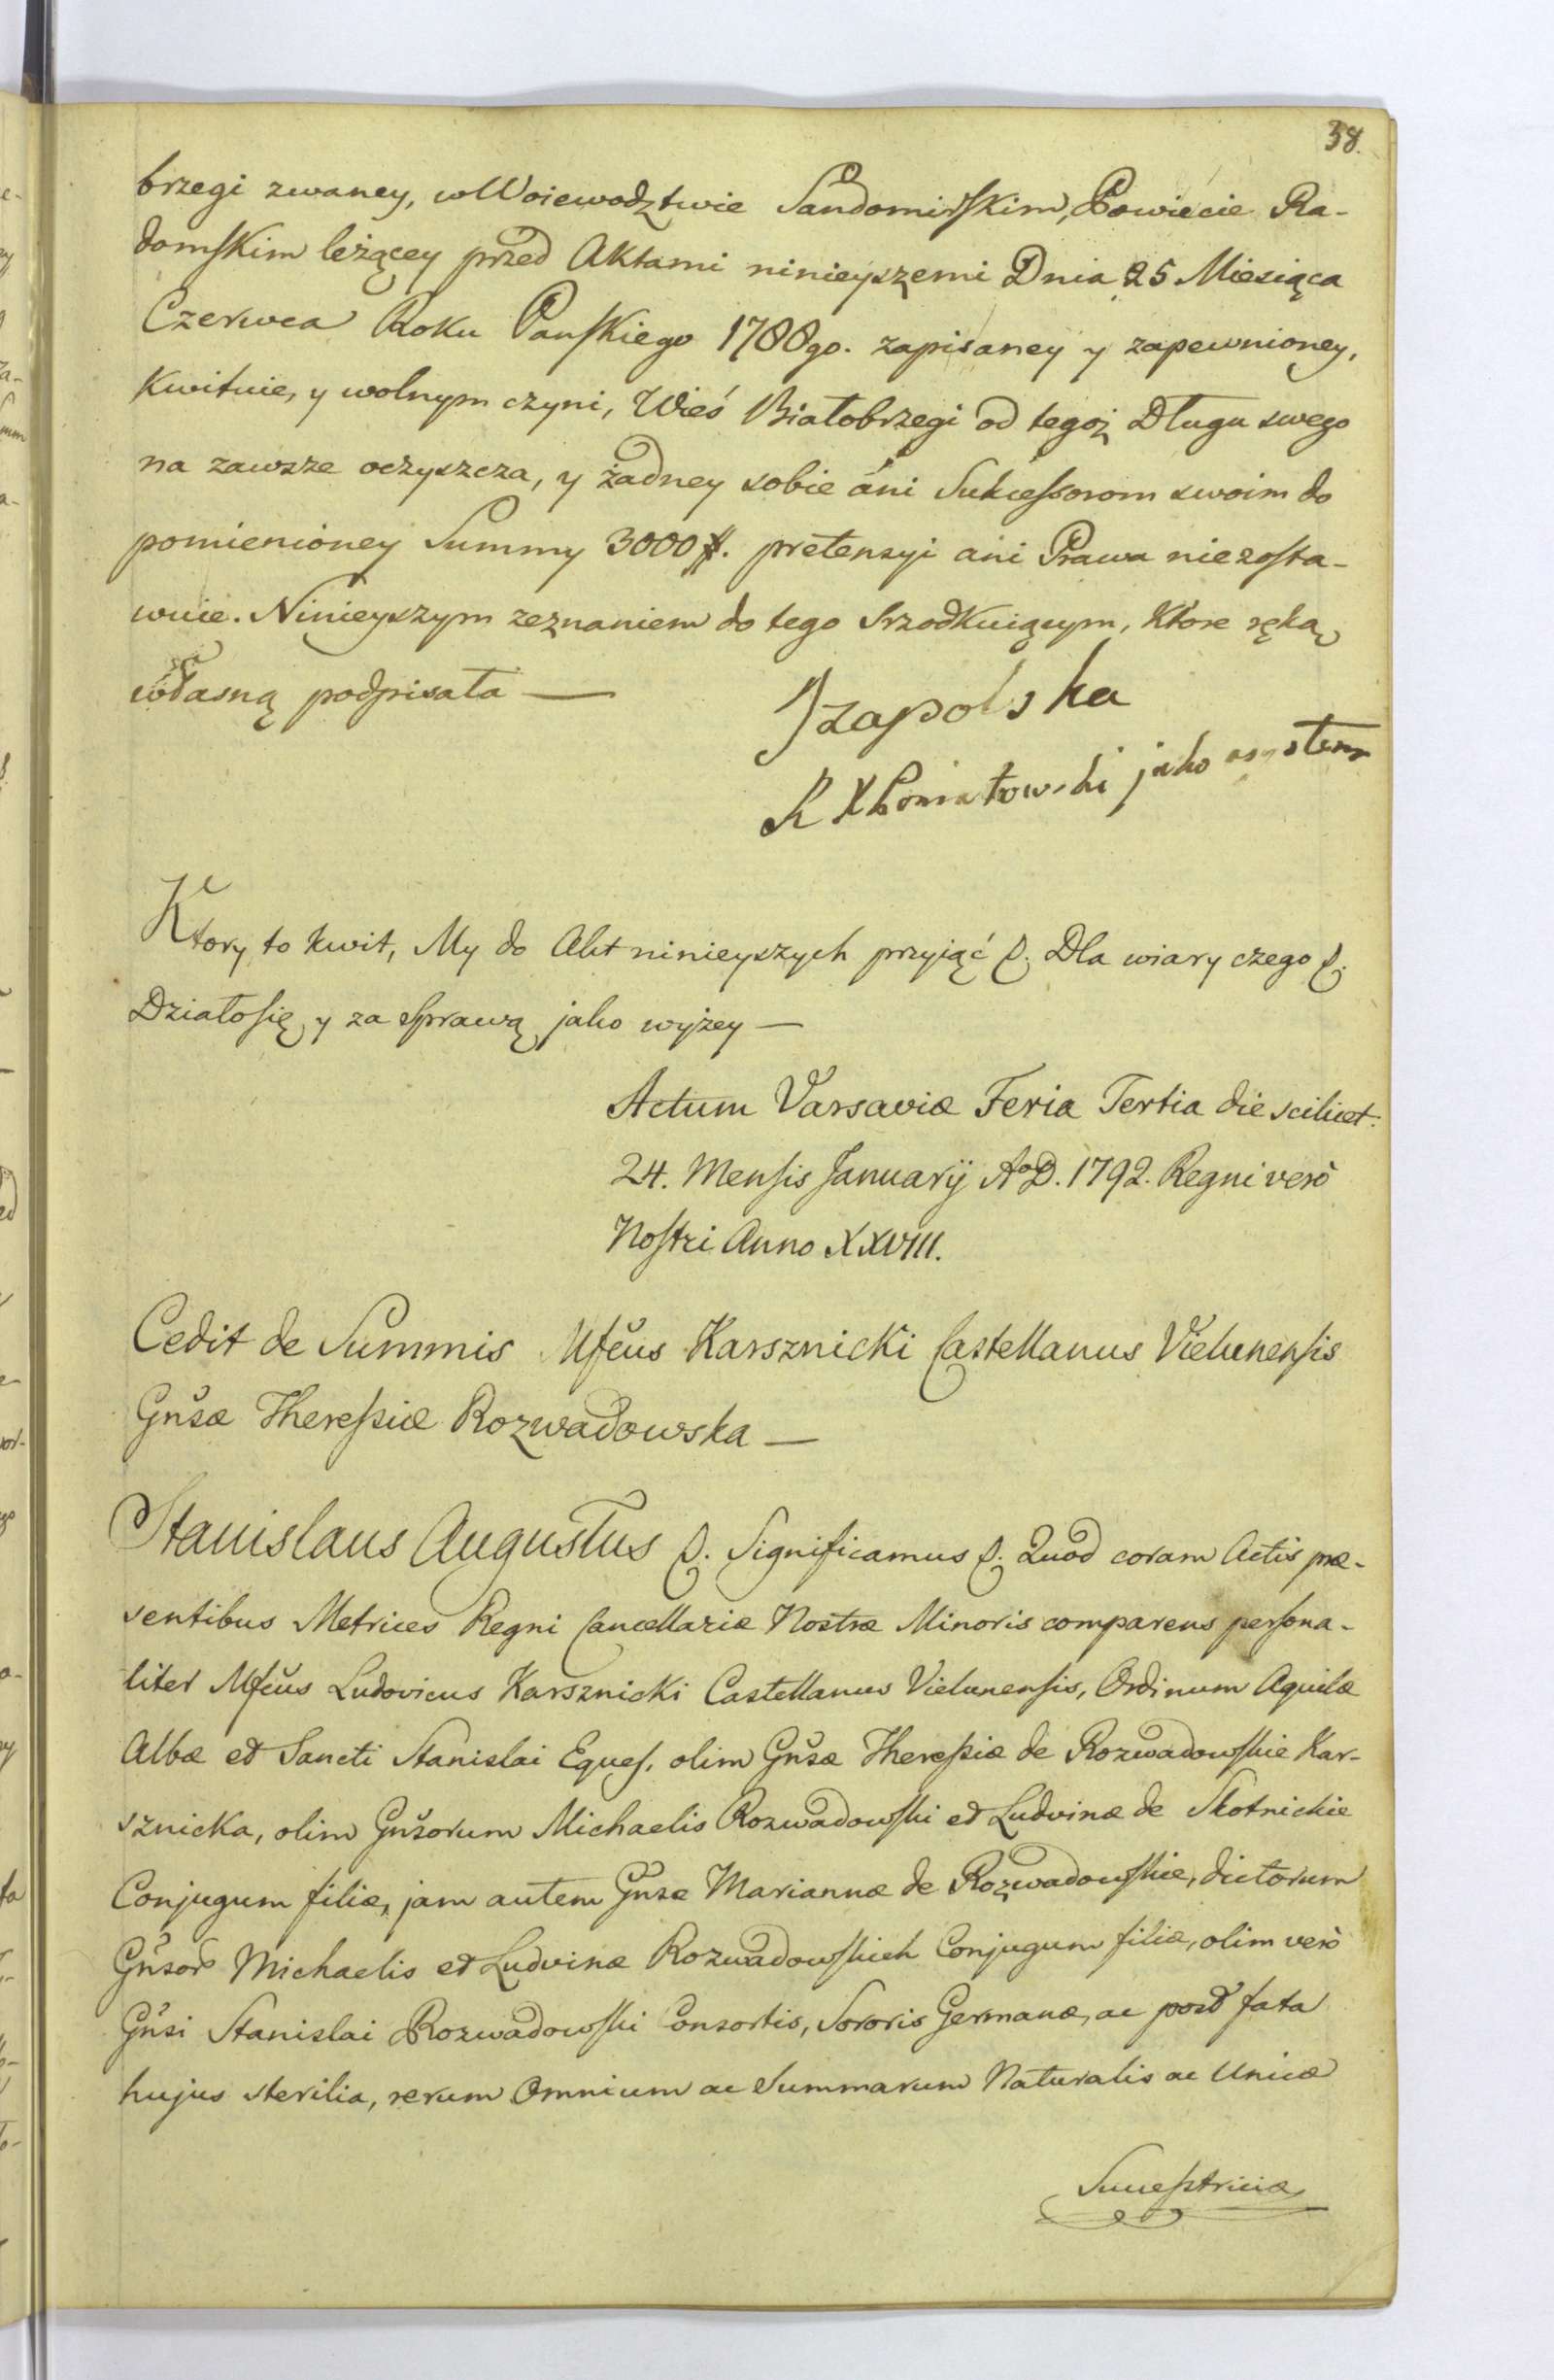 38.
brzegi zwaney, w Woiewodztwie Sandomirskim, Powiecie Ra-
domskim leżącey przed Aktami ninieyszemi Dnia 25 Miesiąca
Czerwca Roku Panskiego 1788go. zapisaney y zapewnioney,
Kwituie, y wolnym czyni, Wieś Białobrzegi od tegoż Długu swego
na zawsze oczyszcza, y żadney sobie áni Sukcessorom swoim do
pomienioney Summy 3000 ff. pretensyi ani Prawa niezosta-
wuie. Ninieyszym zeznaniem do tego srzodkuiącym, ktore ręką
własną podpisała —
Izapolska
K Poniatowski jako asystem
Ktory to kwit, My do Akt ninieyszych przyiąć &. Dla wiary czego &.
Działosię y za sprawą jako wyżey —
Actum Varsaviæ Feria Tertia die scilicet.
24. Mensis Januarÿ AoD. 1792. Regni verò
Nostri Anno XXVIII.
Cedit de Summis Mfcus Karsznicki Castellanus Vielunensis
Gnsæ Theressiæ Rozwadowska —
Stanislaus Augustus &. Significamus &. Quod coram Actis præ-
sentibus Metrices Regni Cancellariæ Nostræ Minoris comparens persona-
liter Mfcus Ludovicus Karsznicki Castellanus Vielunensis, Ordinum Aquilæ
Albæ et Sancti Stanislai Eques, olim Gnsæ Theressiæ de Rozwadowskie Kar-
sznicka, olim Gnsorum Michaelis Rozwadowski et Ludvinæ de Skotnickie
Conjugum filiæ, jam autem Gnsæ Mariannæ de Rozwadowskie, dictorum
Gnsor Michaelis et Ludvinæ Rozwadowskich Conjugum filiæ, olim verò
Gnsi Stanislai Rozwadowski Consortis, Sororis Germanæ, ac post fata
hujus sterilia, rerum Omnium ac Summarum Naturalis ac Unicæ
Successtricis